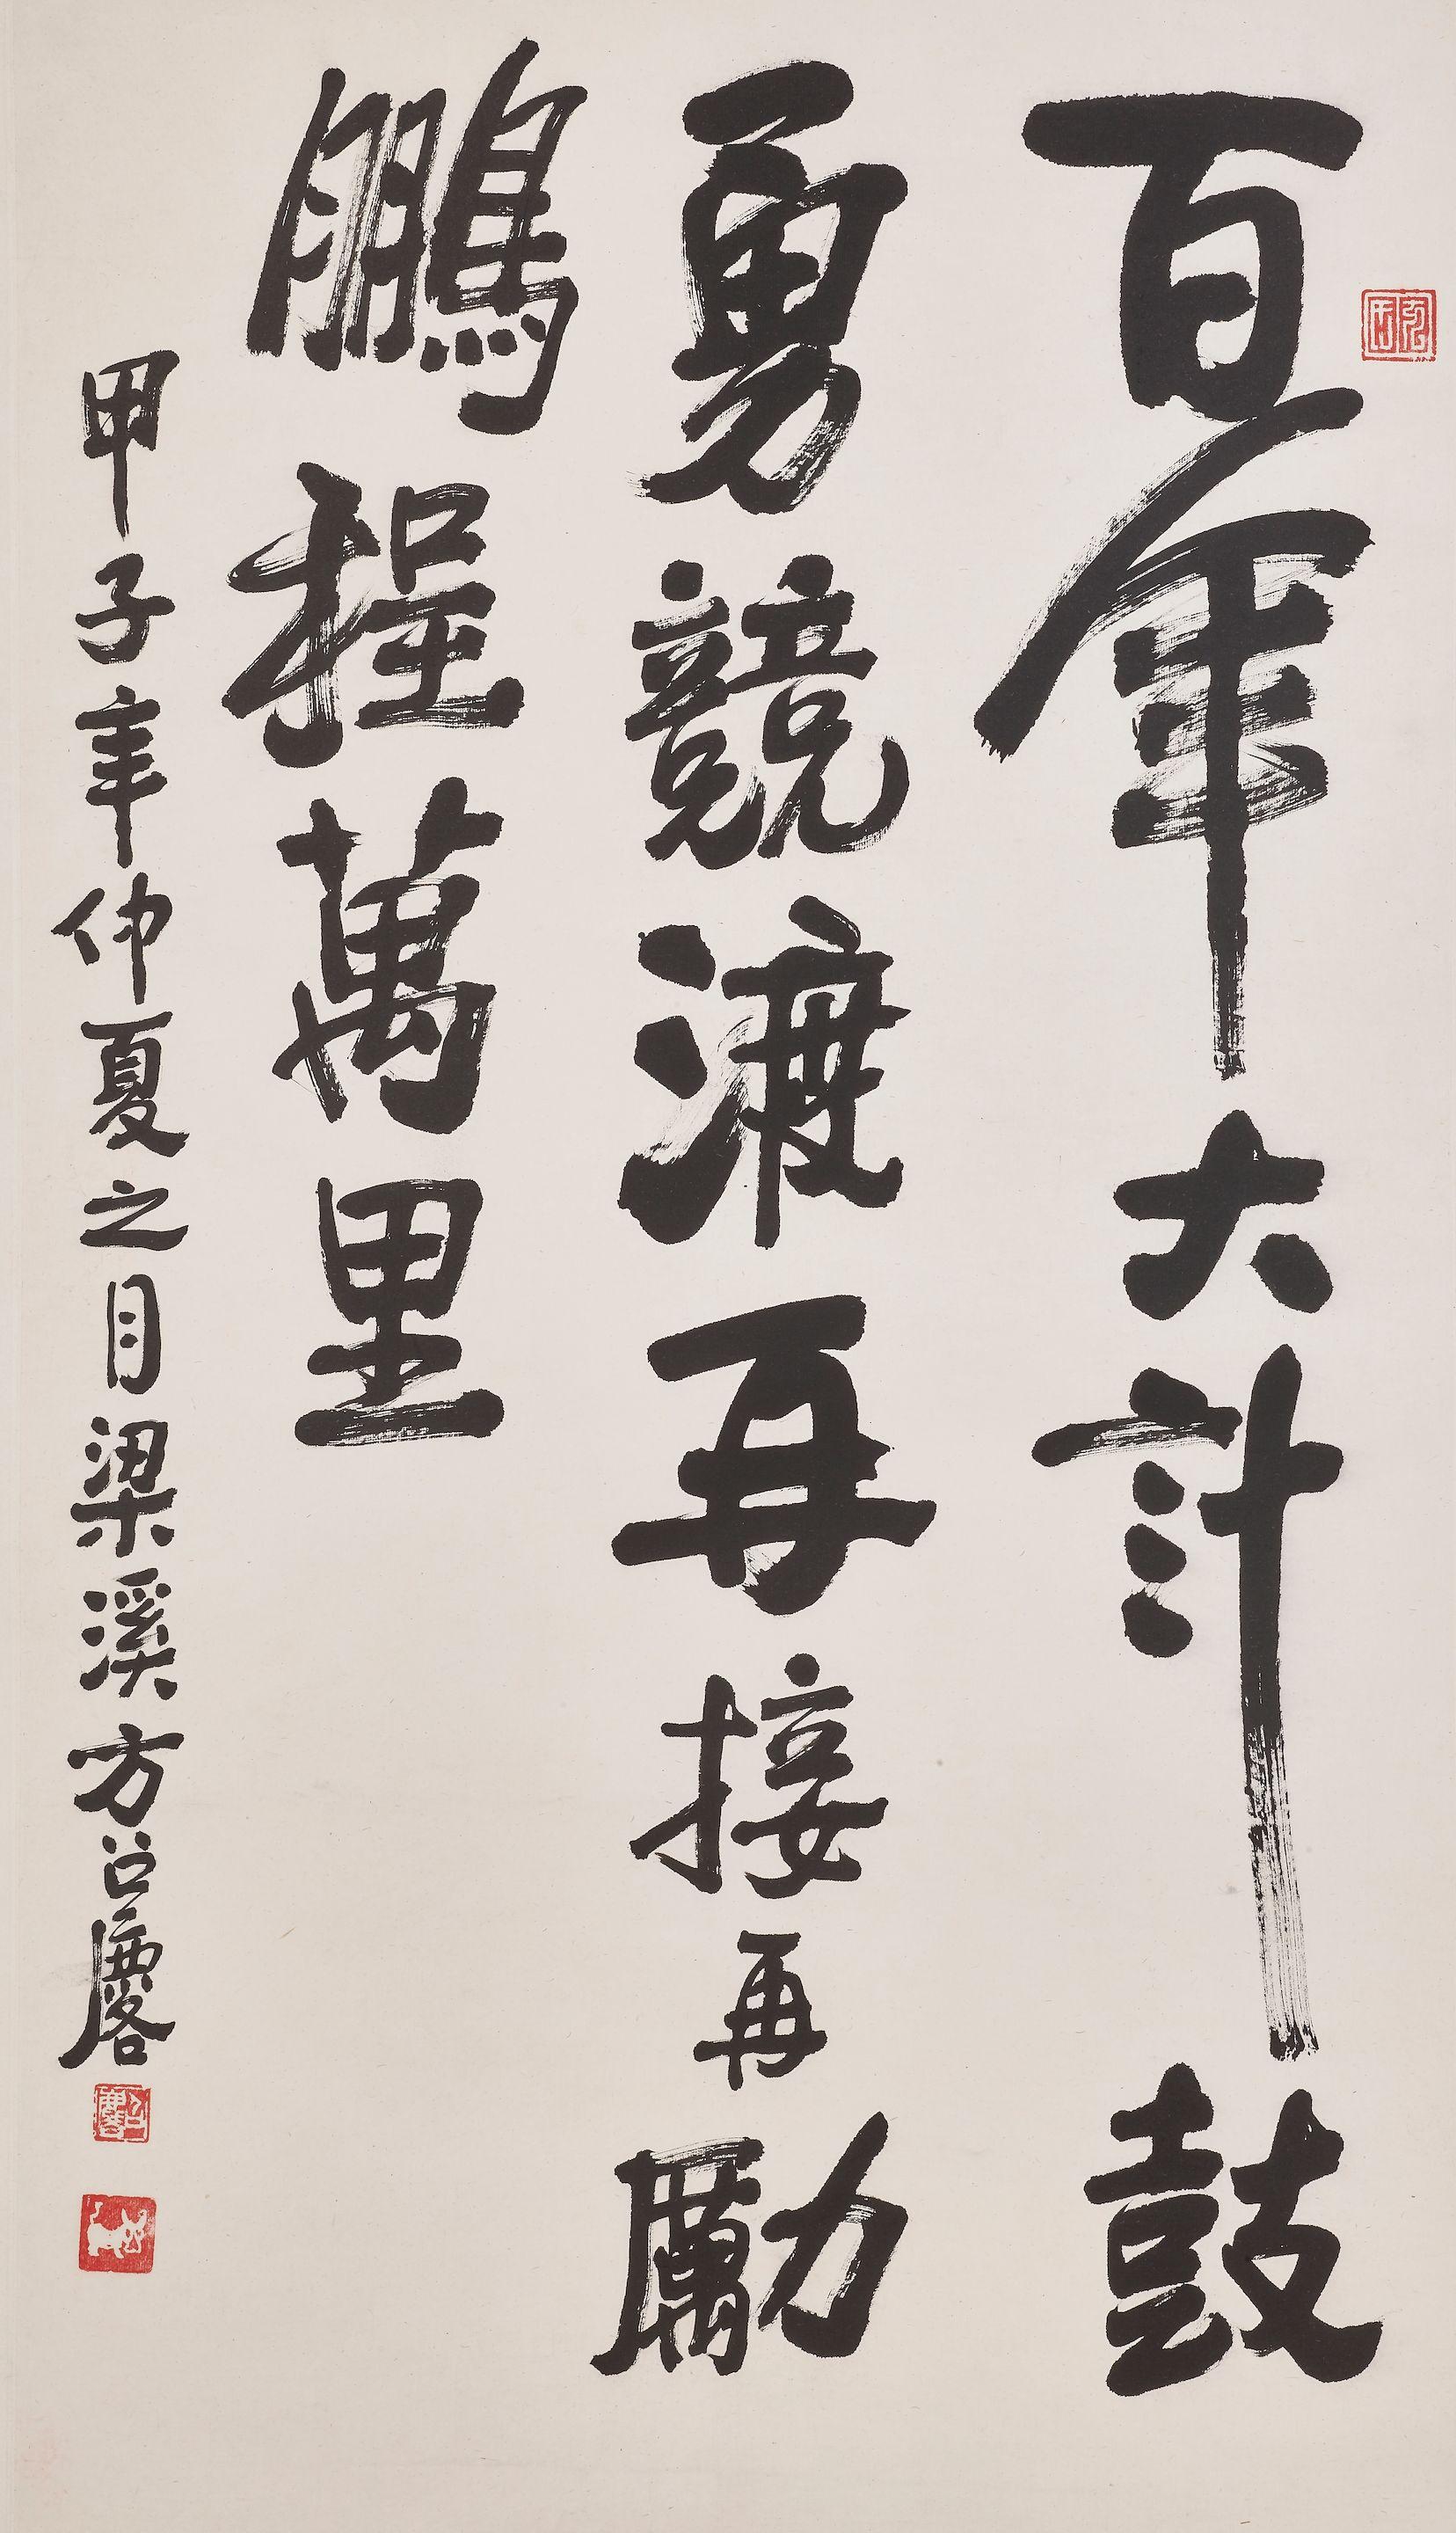 百年大計鼓
勇競渡再接再勵
鵬程萬里
甲子年仲夏之月梁溪方召麐
召麐